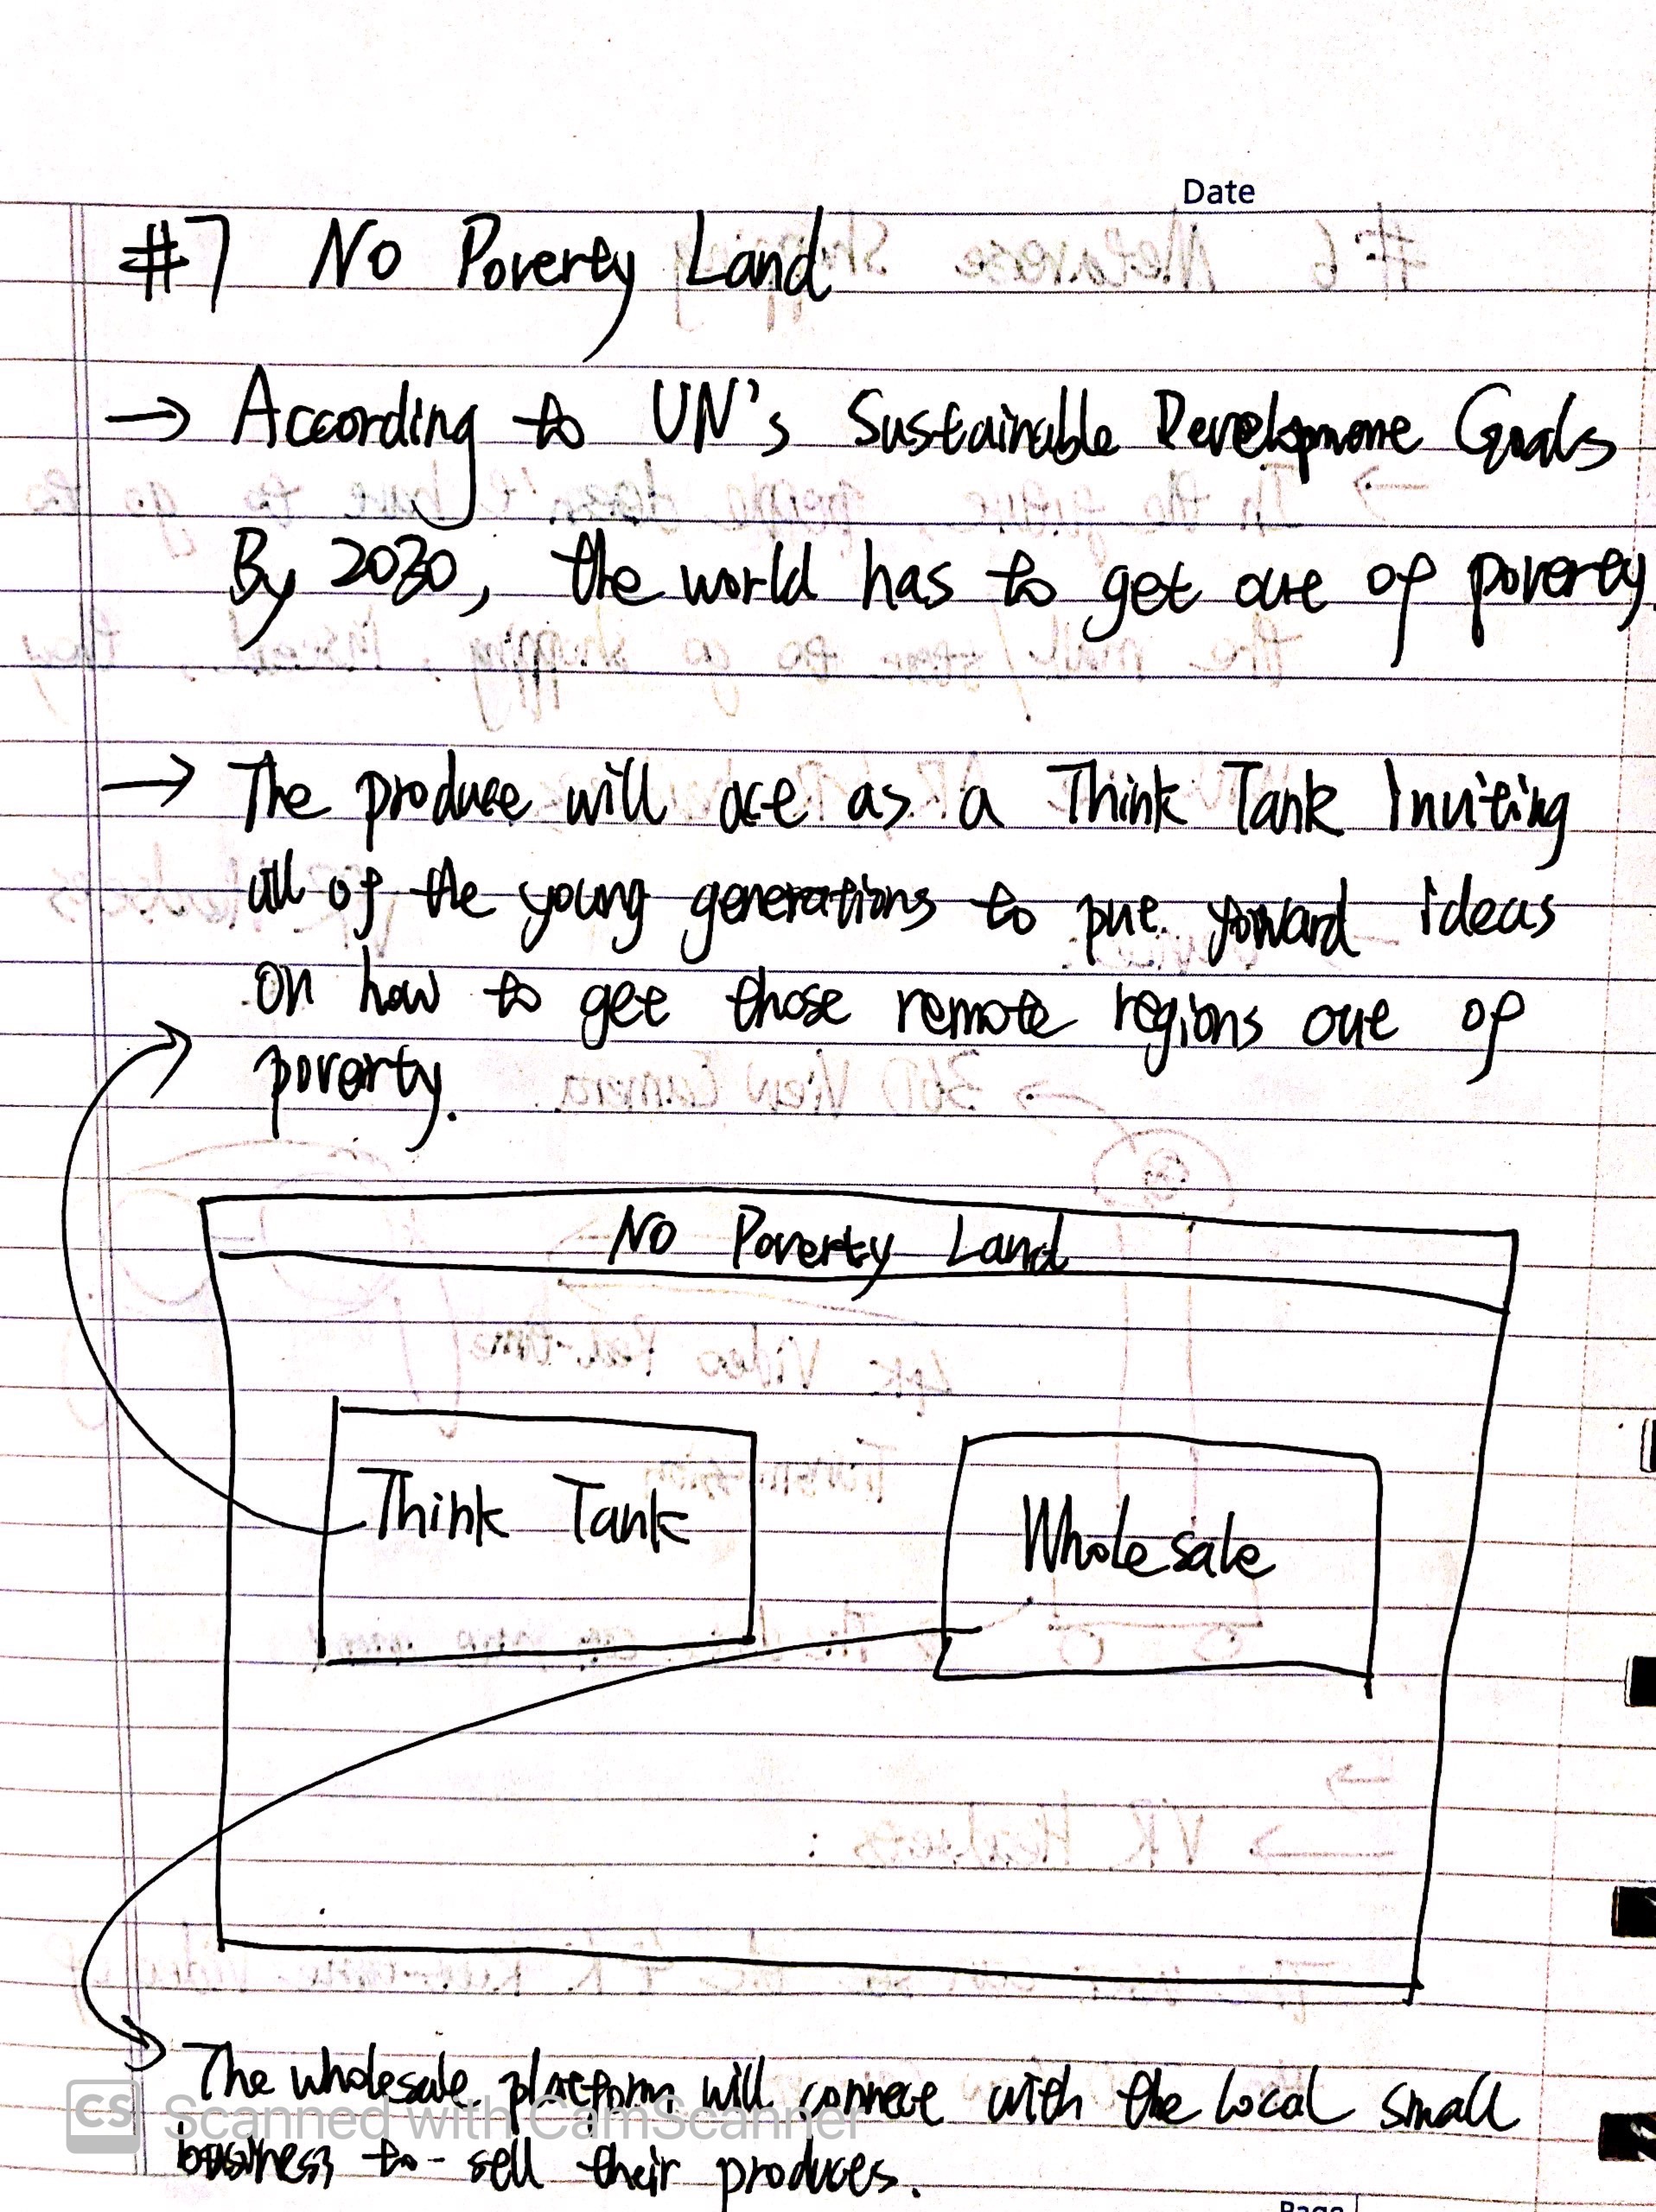 Date
#7 No Poverty Land
→ According to UN's Sustainable Development Goals
By 2030, the world has to get out of poverty.
→ The product will act as a Think Tank Inviting
all of the young generations to put forward ideas
on how to get those remote regions out of
poverty.
No Poverty Land
Think Tank
Wholesale
The wholesale platform will connect with the local small
business to sell their products.
CS Scanned with CamScanner
Page